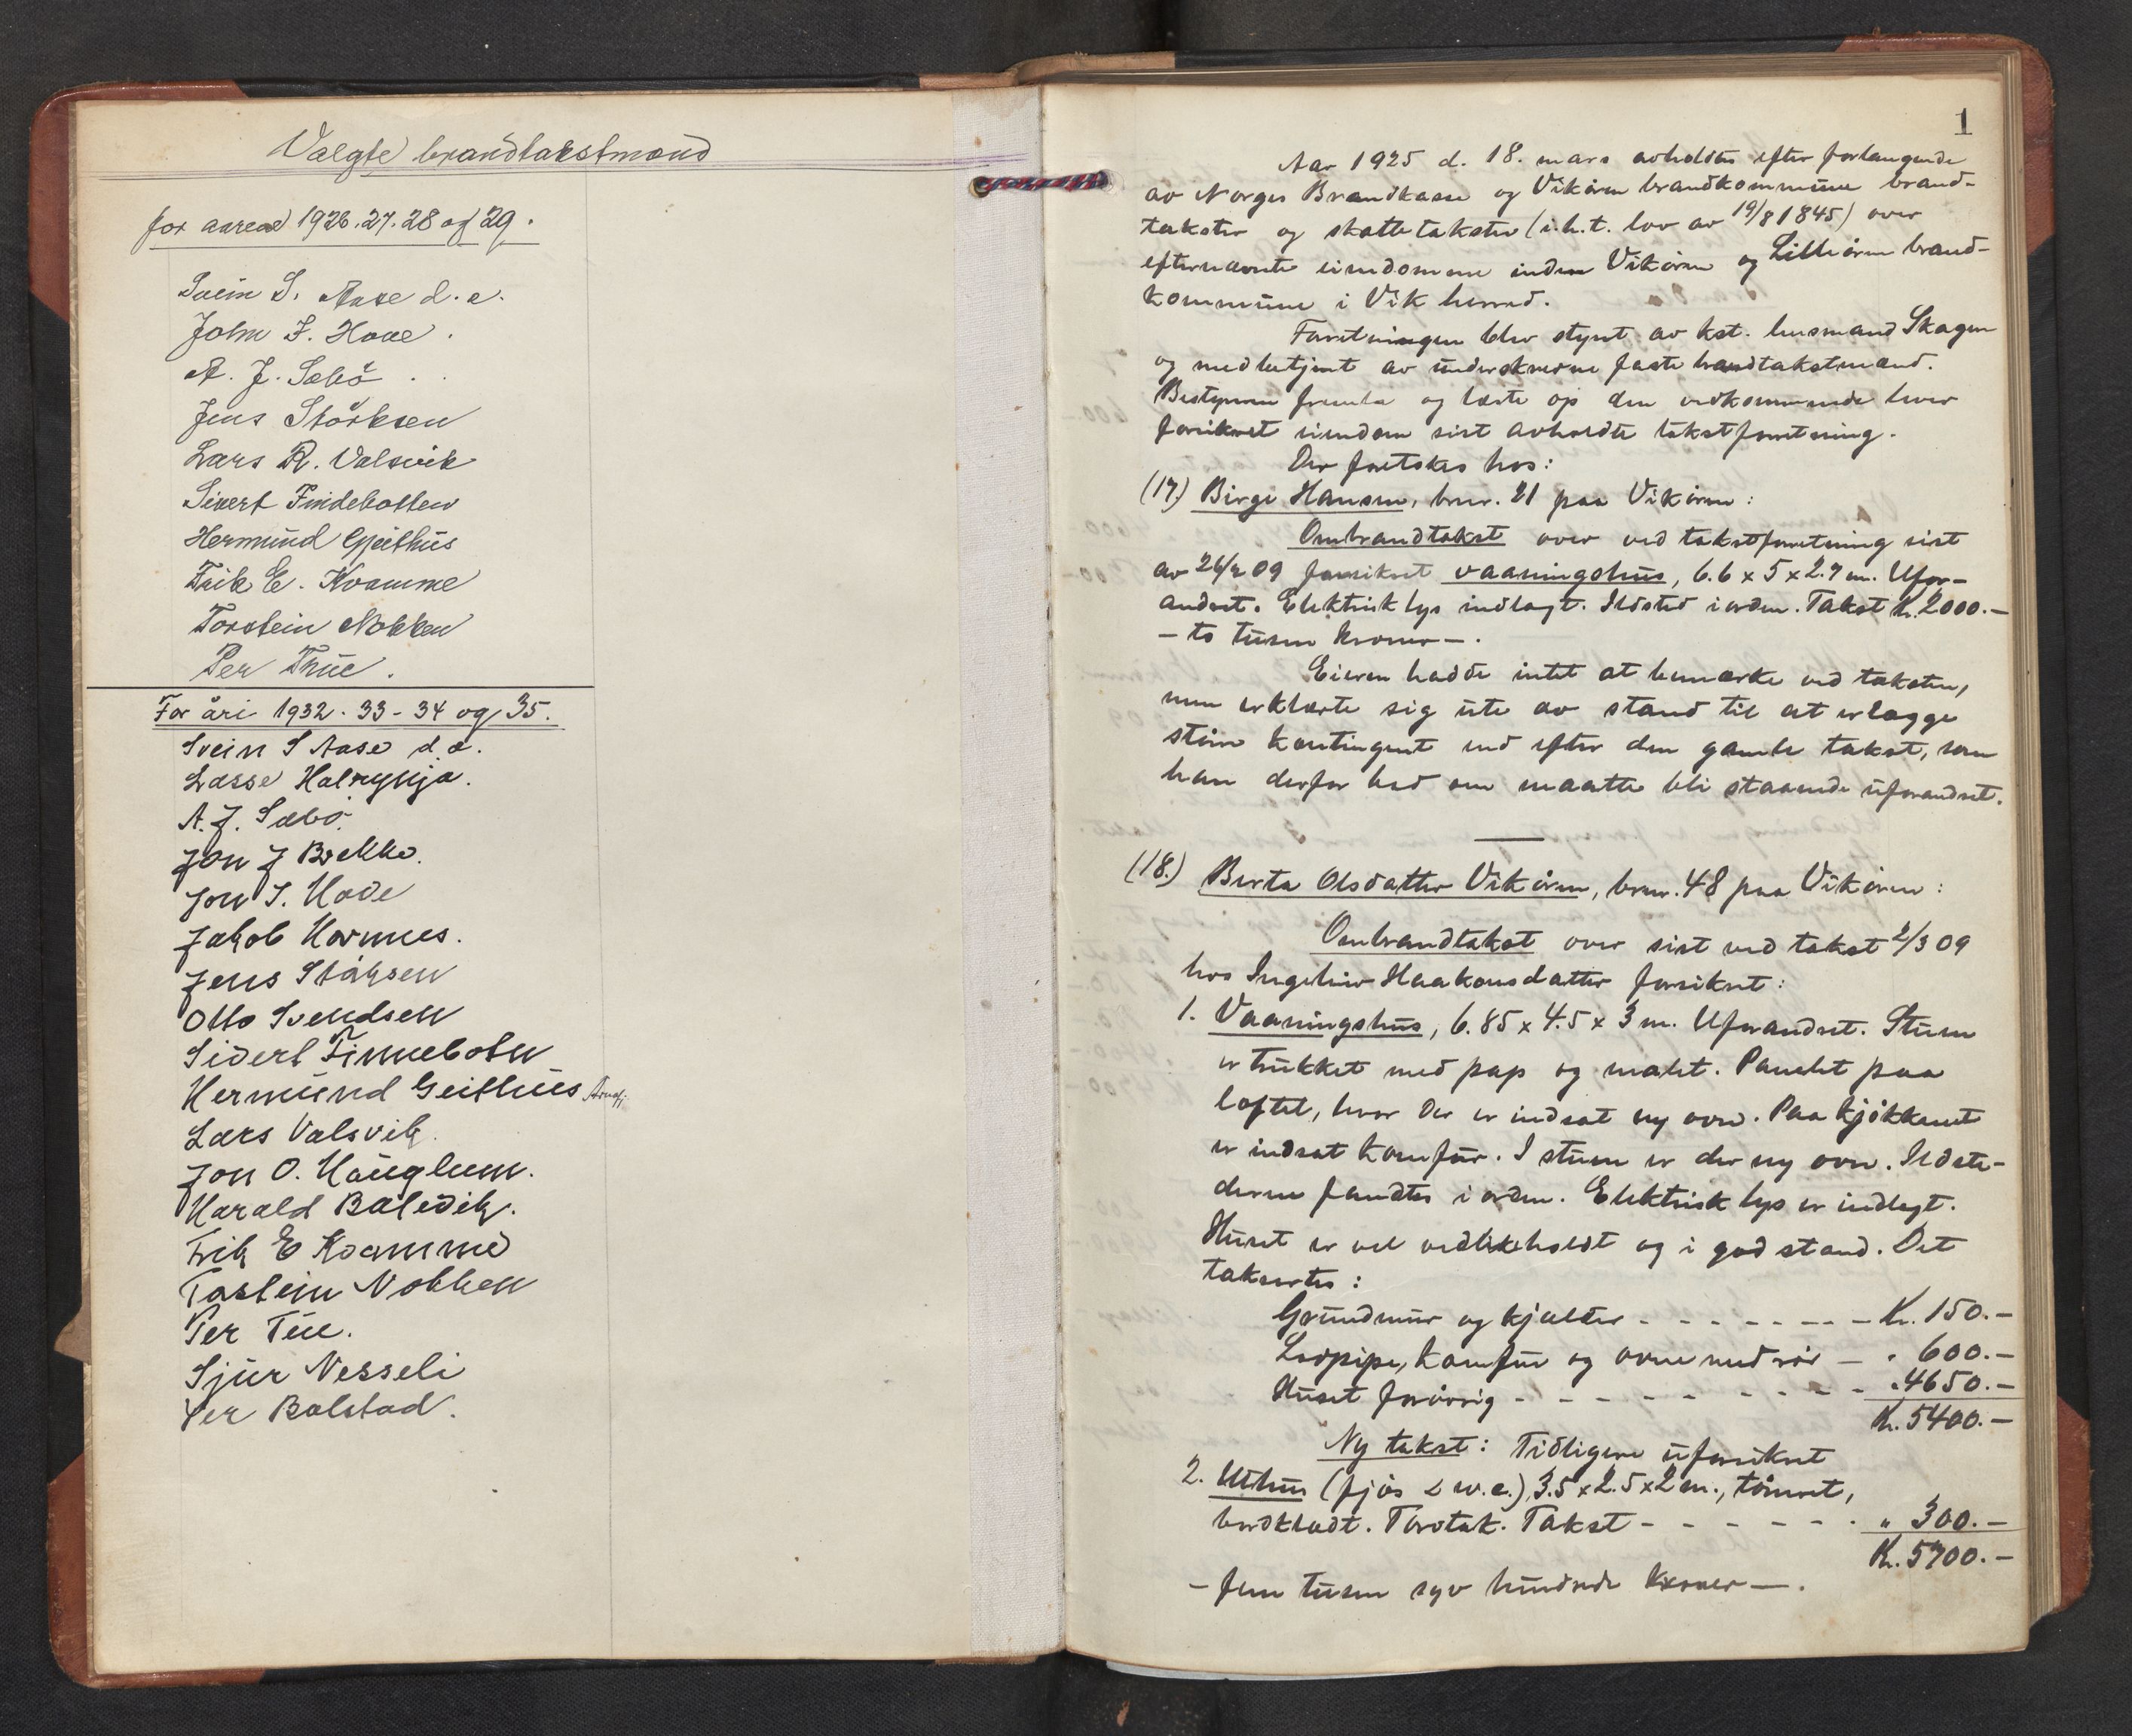 Valgte brandtakstmænd
for aarene 1926.27.28 og 29.
Svein S. Aase d.e.
John I. Hove.
A. J. Sæbö
Jens Störksen
Lars R. Valsvik
Sivert Findebotten
Hermund Gjeithus
Erik E. Kvamme
Torstein Nokken
Per Thue.
For åri 1932-33-34 og 35.
Svein S Aase d.e.
Lasse Halrynjo.
A. J. Sæbö.
Jon J Brekke.
Jon I. Hove
Jakob Hormnes.
Jens Störksen
Otto Svendsen
Sivert Finnebotn
Hermund Geithus
Lars Valsvik.
Jon O. Hauglum.
Harald Balevik.
Erik E Kvamme
Torstein Nokken
Per Tue.
Sjur Nesseli
Per Bolstad.
1
Aar 1925 d. 18. mars avholdtes efter forlangende
av Norges Brandkasse og Vikören brandkommune brand-
takster og skattetakster (i.h.t. lov av 19/8 1845) over
efternævnte eiendomme inden Vikören og Lilleören brand-
kommune i Vik herred.
Forretningen blev styret av kst. lensmand Skagen
og medbetjent av underskrevne faste brandtakstmænd.
Bestyreren fremla og læste op den vedkommende hver
forsikret eiendom sist avholdte takstforretning.
Der foretokes hos:
(17.) Birge Hansen, brnr. 21 paa Vikören:
Ombrandtakst over ved takstforretning sist
av 26/2 09 forsikret vaaningshus, 6.6 x 5 x 2.7 m. Ufor-
andret. Elektrisk lys indlagt. Ildsted i orden. Takst Kr. 2000.-
- to tusen kroner -.
Eieren hadde intet at bemærke ved taksten,
men erklærte sig ute av stand til at erlægge
större kontingent end efter den gamle takst, som
han derfor bad om maatte bli staaende uforandret.
(18.) Berta Olsdatter Vikören, brnr. 48 paa Vikören:
Ombrandtakst over sist ved takst 2/3 09
hos Ingebior Haakonsdatter forsikret:
1. Vaaningshus, 6.85 x 4.5 x 3 m. Uforandret. Stuen
er trukket med pap og malet. Panelet paa
loftet, hvor der er indsat ny ovn. Paa kjökkenet
er indsat komfur. I stuen er der ny ovn. Ildste-
derne fandtes i orden. Elektrisk lys er indlagt.
Huset er vel vedlikeholdt og i god stand. Det
takseres:
Grundmur og kjelder - - - - - - - Kr. 150.-
Lodpipe, komfur og ovne med rör - " 600.-
Huset forövrig - - - - - - - - - " 4650.-
Kr. 5400.-
Ny takst: Tidligere uforsikret
2. Uthus (fjös & w.c.), 3.5 x 2.5 x 2 m., tömret,
bordklædt. Torvtak. Takst - - - - - - " 300.-
Kr. 5700.-
- fem tusen syv hundrede kroner -.